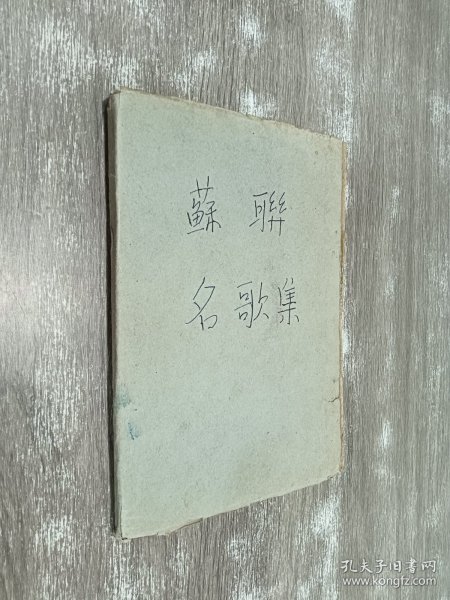 蘇聯
名歌集
孔夫子旧书网
www.kongfz.com